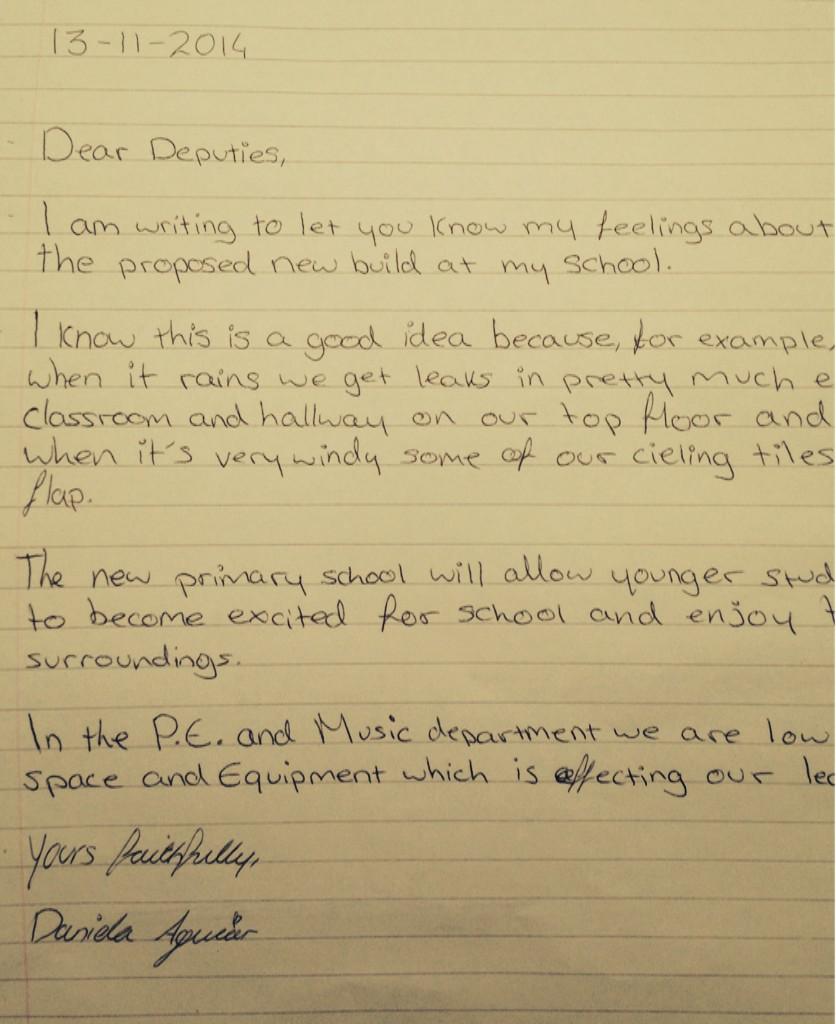 13-11-2014
Dear Deputies,
I am writing to let you know my feelings about
the proposed new build at my school.
I know this is a good idea because, for example,
when it rains we get leaks in pretty much e
classroom and hallway on our top floor and
when it's very windy some of our cieling tiles
flap.
The new primary school will allow younger stud
to become excited for school and enjoy t
surroundings.
In the P.E. and Music department we are low
space and Equipment which is effecting our lec
Yours faithfully,
Daniela Aguiar